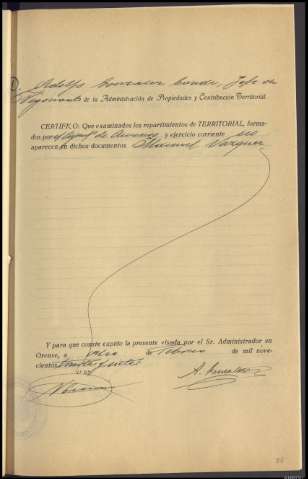 D. Adolfo Gonzalez Conde, Jefe de
Negociado de la Administración de Propiedades y Contribución Territorial.
CERTIFICO: Que examinados los repartimientos de TERRITORIAL, forma-
dos por el Aynt. de y ejercicio corriente no
aparece en dichos documentos Manuel Vazquez
Y para que conste expido la presente visada por el Sr. Administrador en
Orense, a ocho de Febrero de mil nove-
cientos
A. Gonzalez